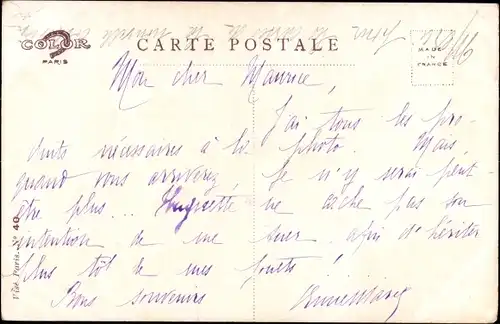 COLOR
PARIS
CARTE POSTALE
MADE
IN
FRANCE
Mon cher Maurice,
J'ai tous les pro-
duits nécessaires à la photo. Mais,
quand vous arriverez, je n'y serai peut
être plus... Huguette ne cache pas son
intention de me tuer afin d'hériter
plus tôt de mes jouets!
Bons souvenirs
Visé, Paris. N° 40